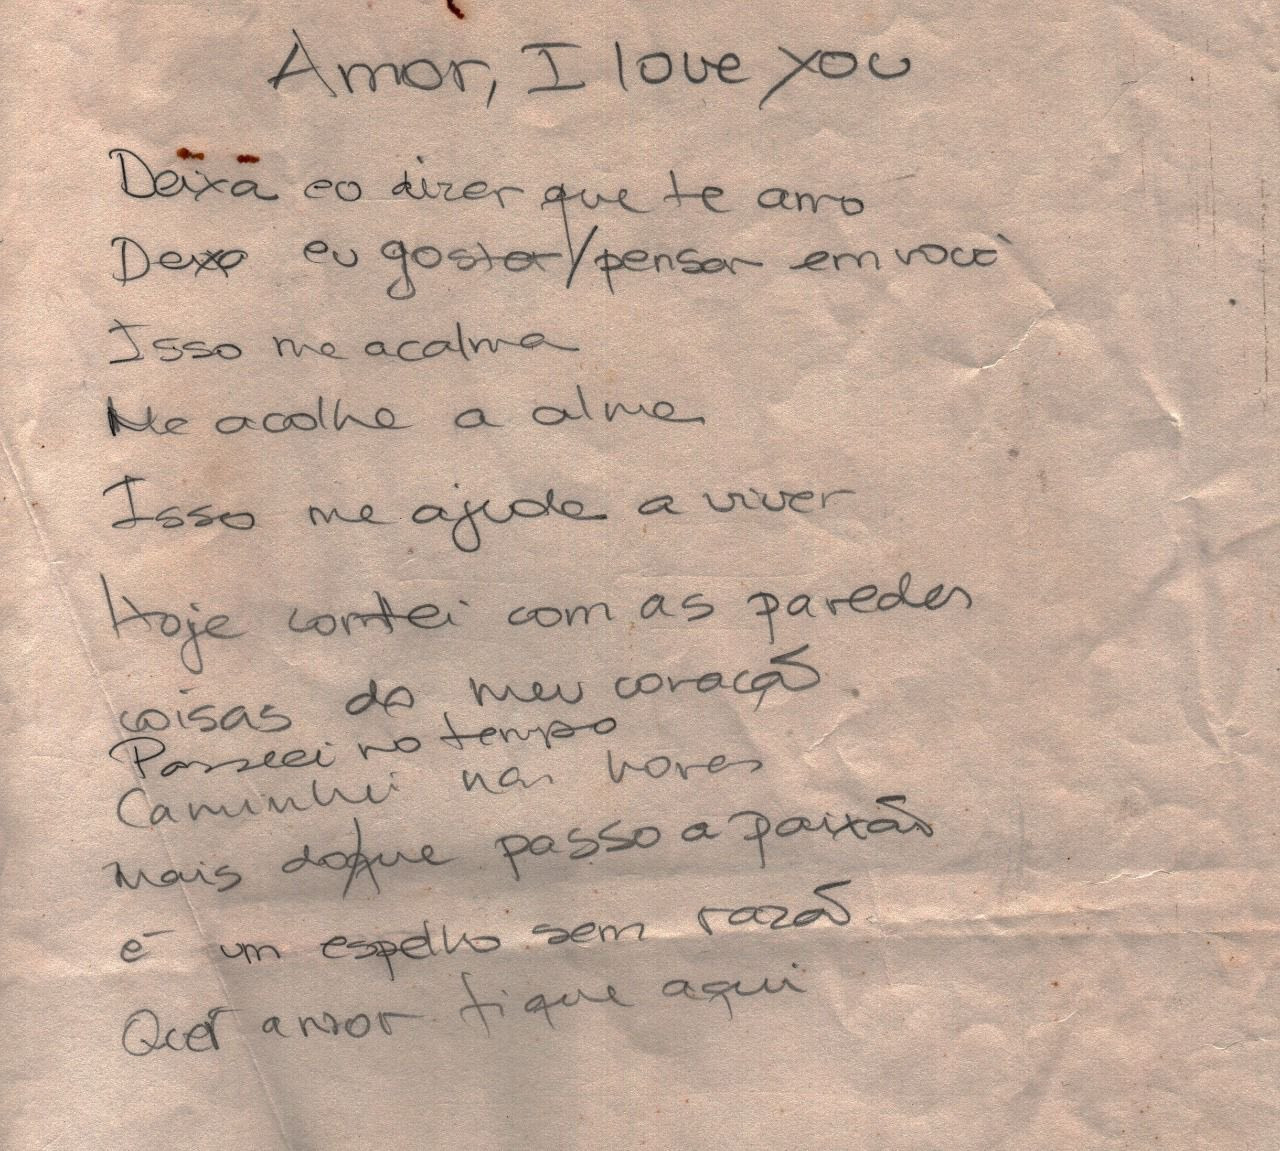 Amor, I love you
Deixa eo dizer que te amo
Dexa eu gostar/pensar em você
Isso me acalma
Me acolhe a alma
Isso me ajuda a viver
Hoje contei com as paredes
coisas do meu coração
Passeei no tempo
Caminhei nas horas
mais do que passo a paixão
é um espelho sem razão
Quer amor fique aqui